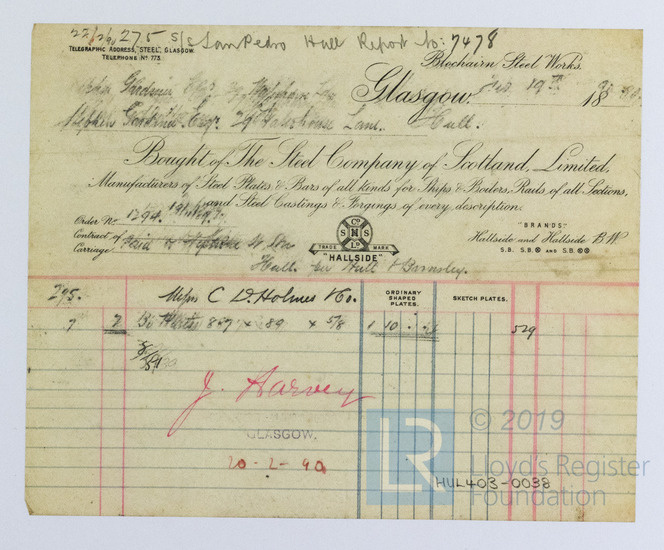 22/2/90 275 S/S San Pedro Hull Report No: 7478
TELEGRAPHIC ADDRESS, "STEEL", GLASGOW.
TELEPHONE No 773.
Blochairn Steel Works.
Glasgow, Feb 19th 1890
Stephen Esqr. Lane. Hull.
Bought of The Steel Company of Scotland, Limited,
Manufacturers of Steel Plates & Bars of all kinds for Ships & Boilers, Rails, of all Sections,
and Steel Castings & Forgings, of every description.
Order No 1294
Contract of
Carriage Paid to
Hull. per Hull & Barnsley.
S Co S N
TRADE MARK
"HALLSIDE"
"BRANDS"
Hallside and Hallside B.W
S.B. S.B.® AND S.B.®®
295. Messrs C. D. Holmes & Co.
ORDINARY SHAPED PLATES.
SKETCH PLATES.
7 7 Bo 887 x 89 x 5/8 1 10 529
J. Harvey
GLASGOW.
20-2-90
LR © 2019
Lloyd's Register
Foundation
HUL403-0038